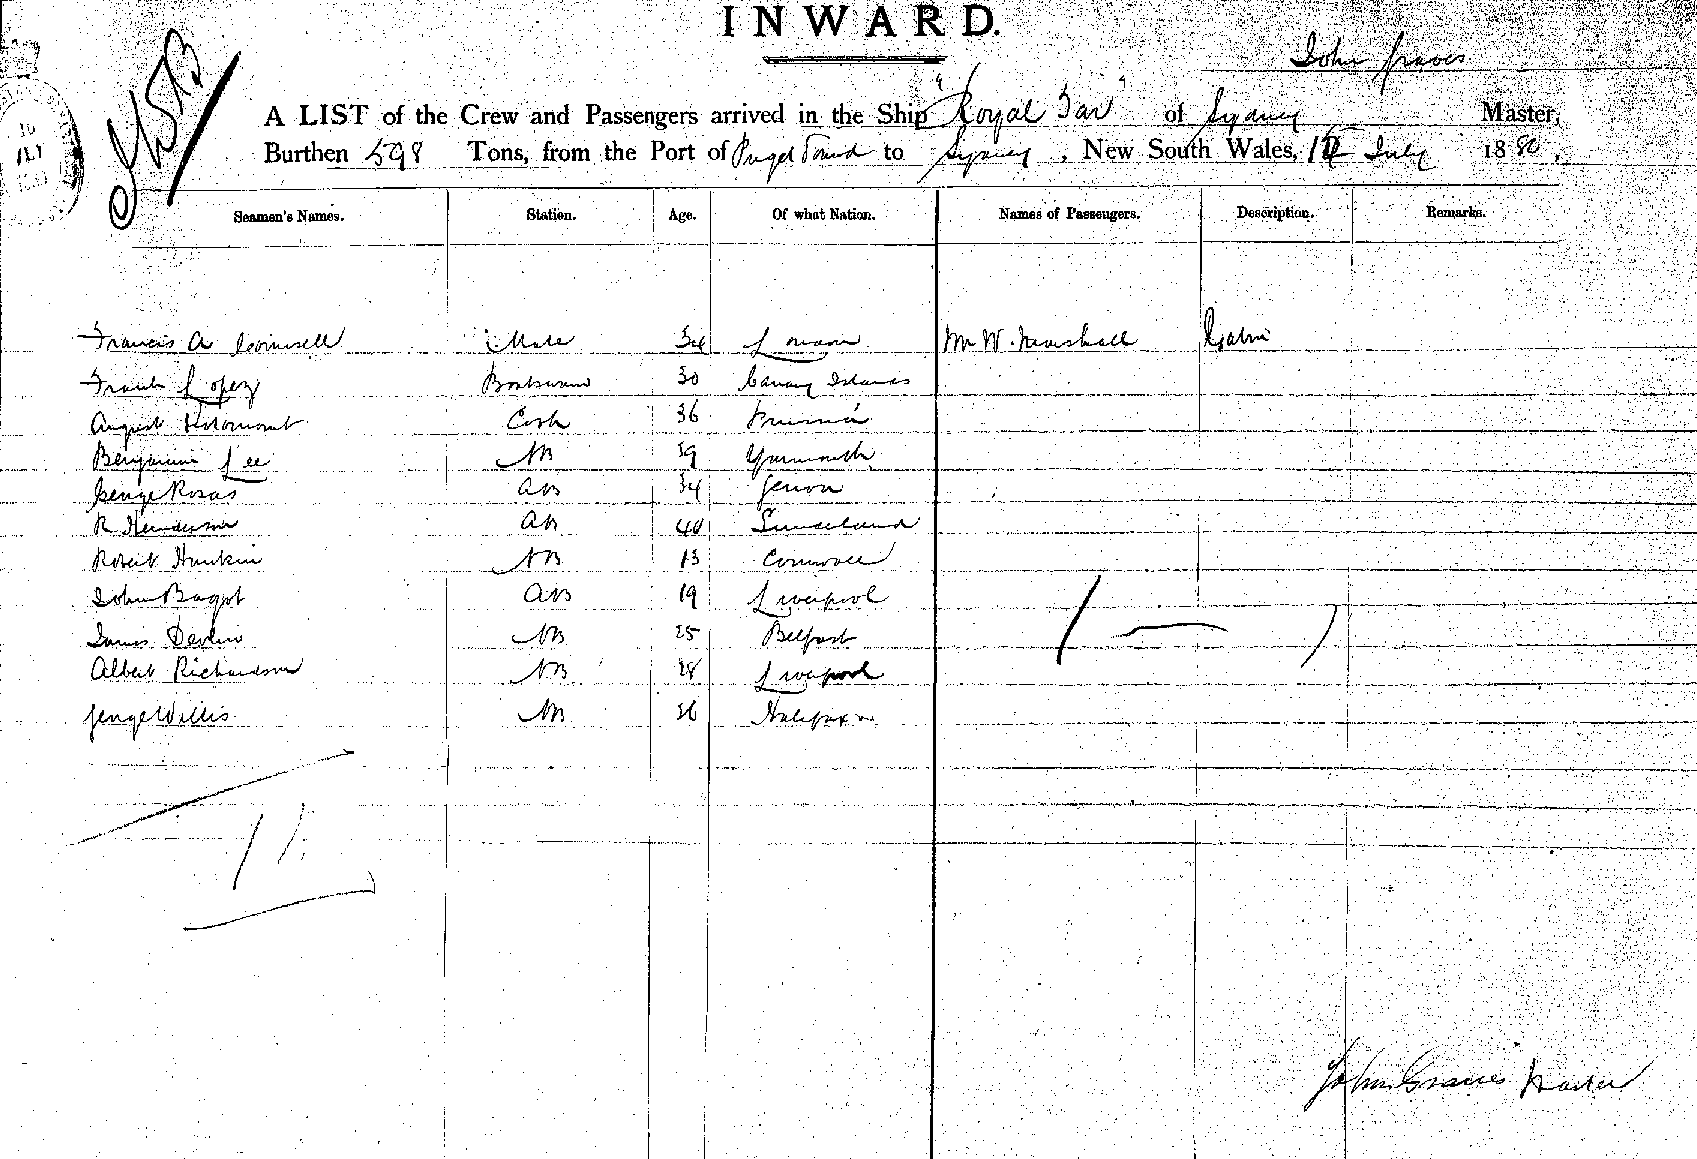 INWARD.
John Graves
A LIST of the Crew and Passengers arrived in the Ship "Royal Tar" of Sydney Master,
Burthen 598 Tons, from the Port of Puget Sound to Sydney, New South Wales, July 1880.
Seamen's Names. Station. Age. Of what Nation. Names of Passengers. Description. Remarks.
Francis A Mate 34 London Mr W. Marshall Cabin
Frank Lopez Boatswain 30 Canary Islands
August Cook 36 Prussia
Benjamin Lee AB 39 Yarmouth
George Rosas AB 34 Genoa
R Henderson AB 40 Sunderland
Robert Hankin AB Cornwall
John Bagot AB 19 Liverpool
James Devlin AB 25 Belfast
Albert Richardson AB 28 Liverpool
George Willis AB 36 Halifax
11
John Graves Master